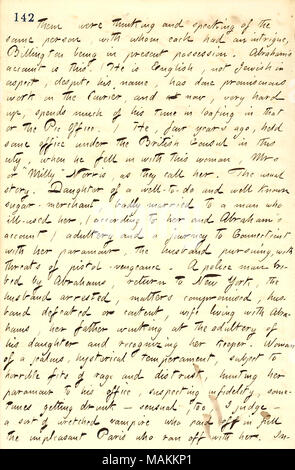 142
them were thinking and speaking of the
same person, with whom each had an intrigue,
Billington being in present possession. Abraham's
account is this. He is English, not Jewish in
aspect, despite his name, has done promiscuous
work on the Courier, and now, very hard
up, spends much of his time in loafing in that
or the Pic Office. He, four years ago, held
some office under the British Consul in this
city, when he fell in with this woman, Mrs
or "Milly" Norris, as they call her. The usual
story. Daughter of a well-to-do and well known
sugar-merchant, badly married to a man who
ill-used her, (according to her and Abraham's
account,) adultery and a journey to Connecticut
with her paramour, the husband pursuing with
threats of pistol-vengeance. A police man bri-
bed by Abrahams, return to New York, the
husband arrested, matters compromised, hus-
band defeated or content, wife living with Abra-
hams, her father winking at the adultery of
his daughter and recognizing her keeper. Woman
of a jealous, hysterical temperament, subject to
horrible fits of rage and distrust, hunting her
paramour to his office, suspecting infidelity, some-
times getting drunk — sensual, too, I judge —
a sort of wretched vampire who paid off in full
the unpleasant Paris who ran off with her. In-
alamy
Image ID: MAKKP1
www.alamy.com